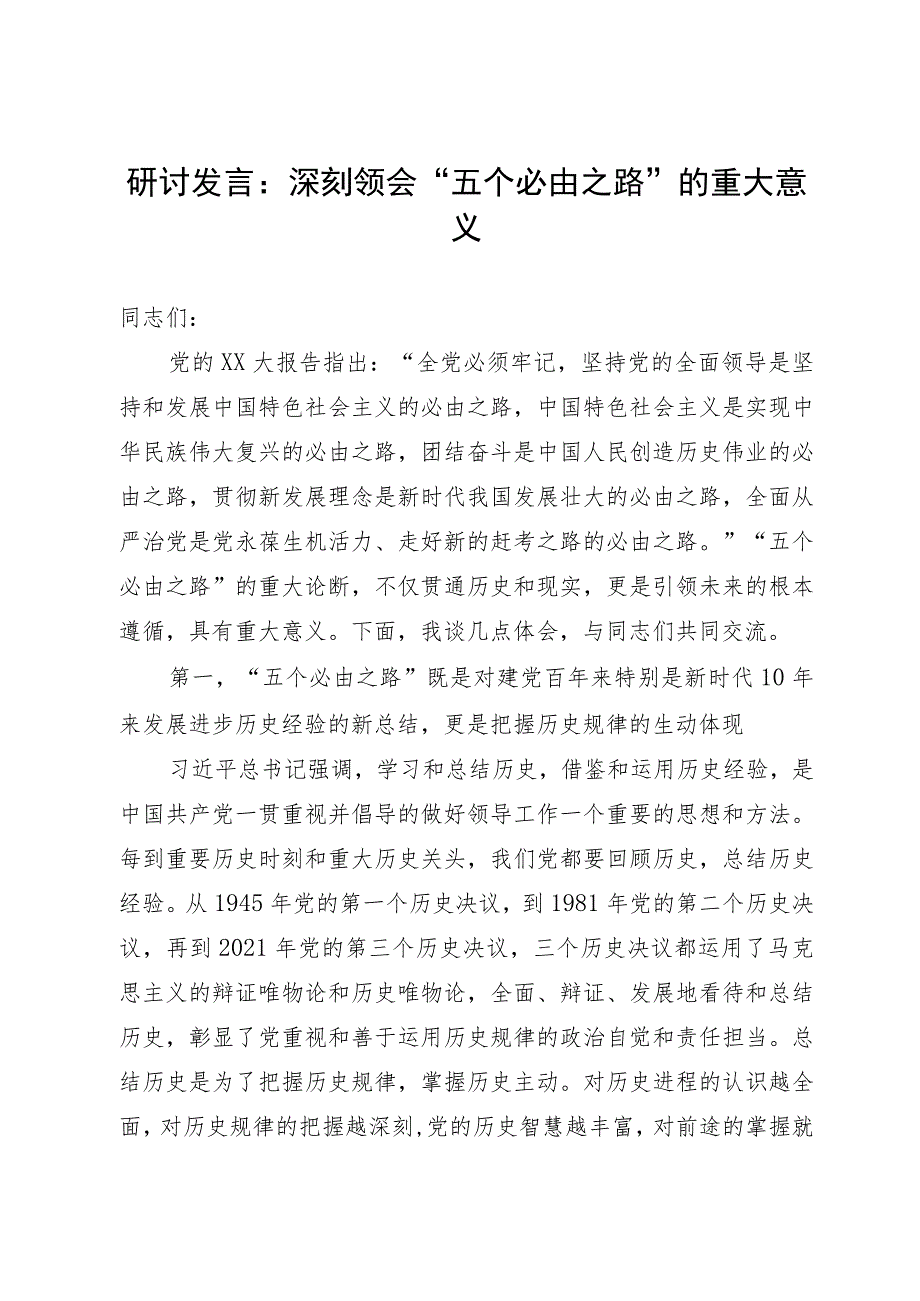 研讨发言：深刻领会“五个必由之路”的重大意
义
同志们：
党的 XX 大报告指出：“全党必须牢记，坚持党的全面领导是坚
持和发展中国特色社会主义的必由之路，中国特色社会主义是实现中
华民族伟大复兴的必由之路，团结奋斗是中国人民创造历史伟业的必
由之路，贯彻新发展理念是新时代我国发展壮大的必由之路，全面从
严治党是党永葆生机活力、走好新的赶考之路的必由之路。”“五个
必由之路”的重大论断，不仅贯通历史和现实，更是引领未来的根本
遵循，具有重大意义。下面，我谈几点体会，与同志们共同交流。
第一，“五个必由之路”既是对建党百年来特别是新时代 10 年
来发展进步历史经验的新总结，更是把握历史规律的生动体现
习近平总书记强调，学习和总结历史，借鉴和运用历史经验，是
中国共产党一贯重视并倡导的做好领导工作一个重要的思想和方法。
每到重要历史时刻和重大历史关头，我们党都要回顾历史，总结历史
经验。从 1945 年党的第一个历史决议，到 1981 年党的第二个历史决
议，再到 2021 年党的第三个历史决议，三个历史决议都运用了马克
思主义的辩证唯物论和历史唯物论，全面、辩证、发展地看待和总结
历史，彰显了党重视和善于运用历史规律的政治自觉和责任担当。总
结历史是为了把握历史规律，掌握历史主动。对历史进程的认识越全
面，对历史规律的把握越深刻,党的历史智慧越丰富，对前途的掌握就